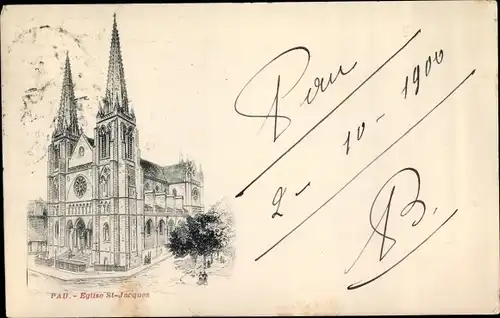 Pau
2 - 10 - 1900
B.
PAU. - Eglise St-Jacques